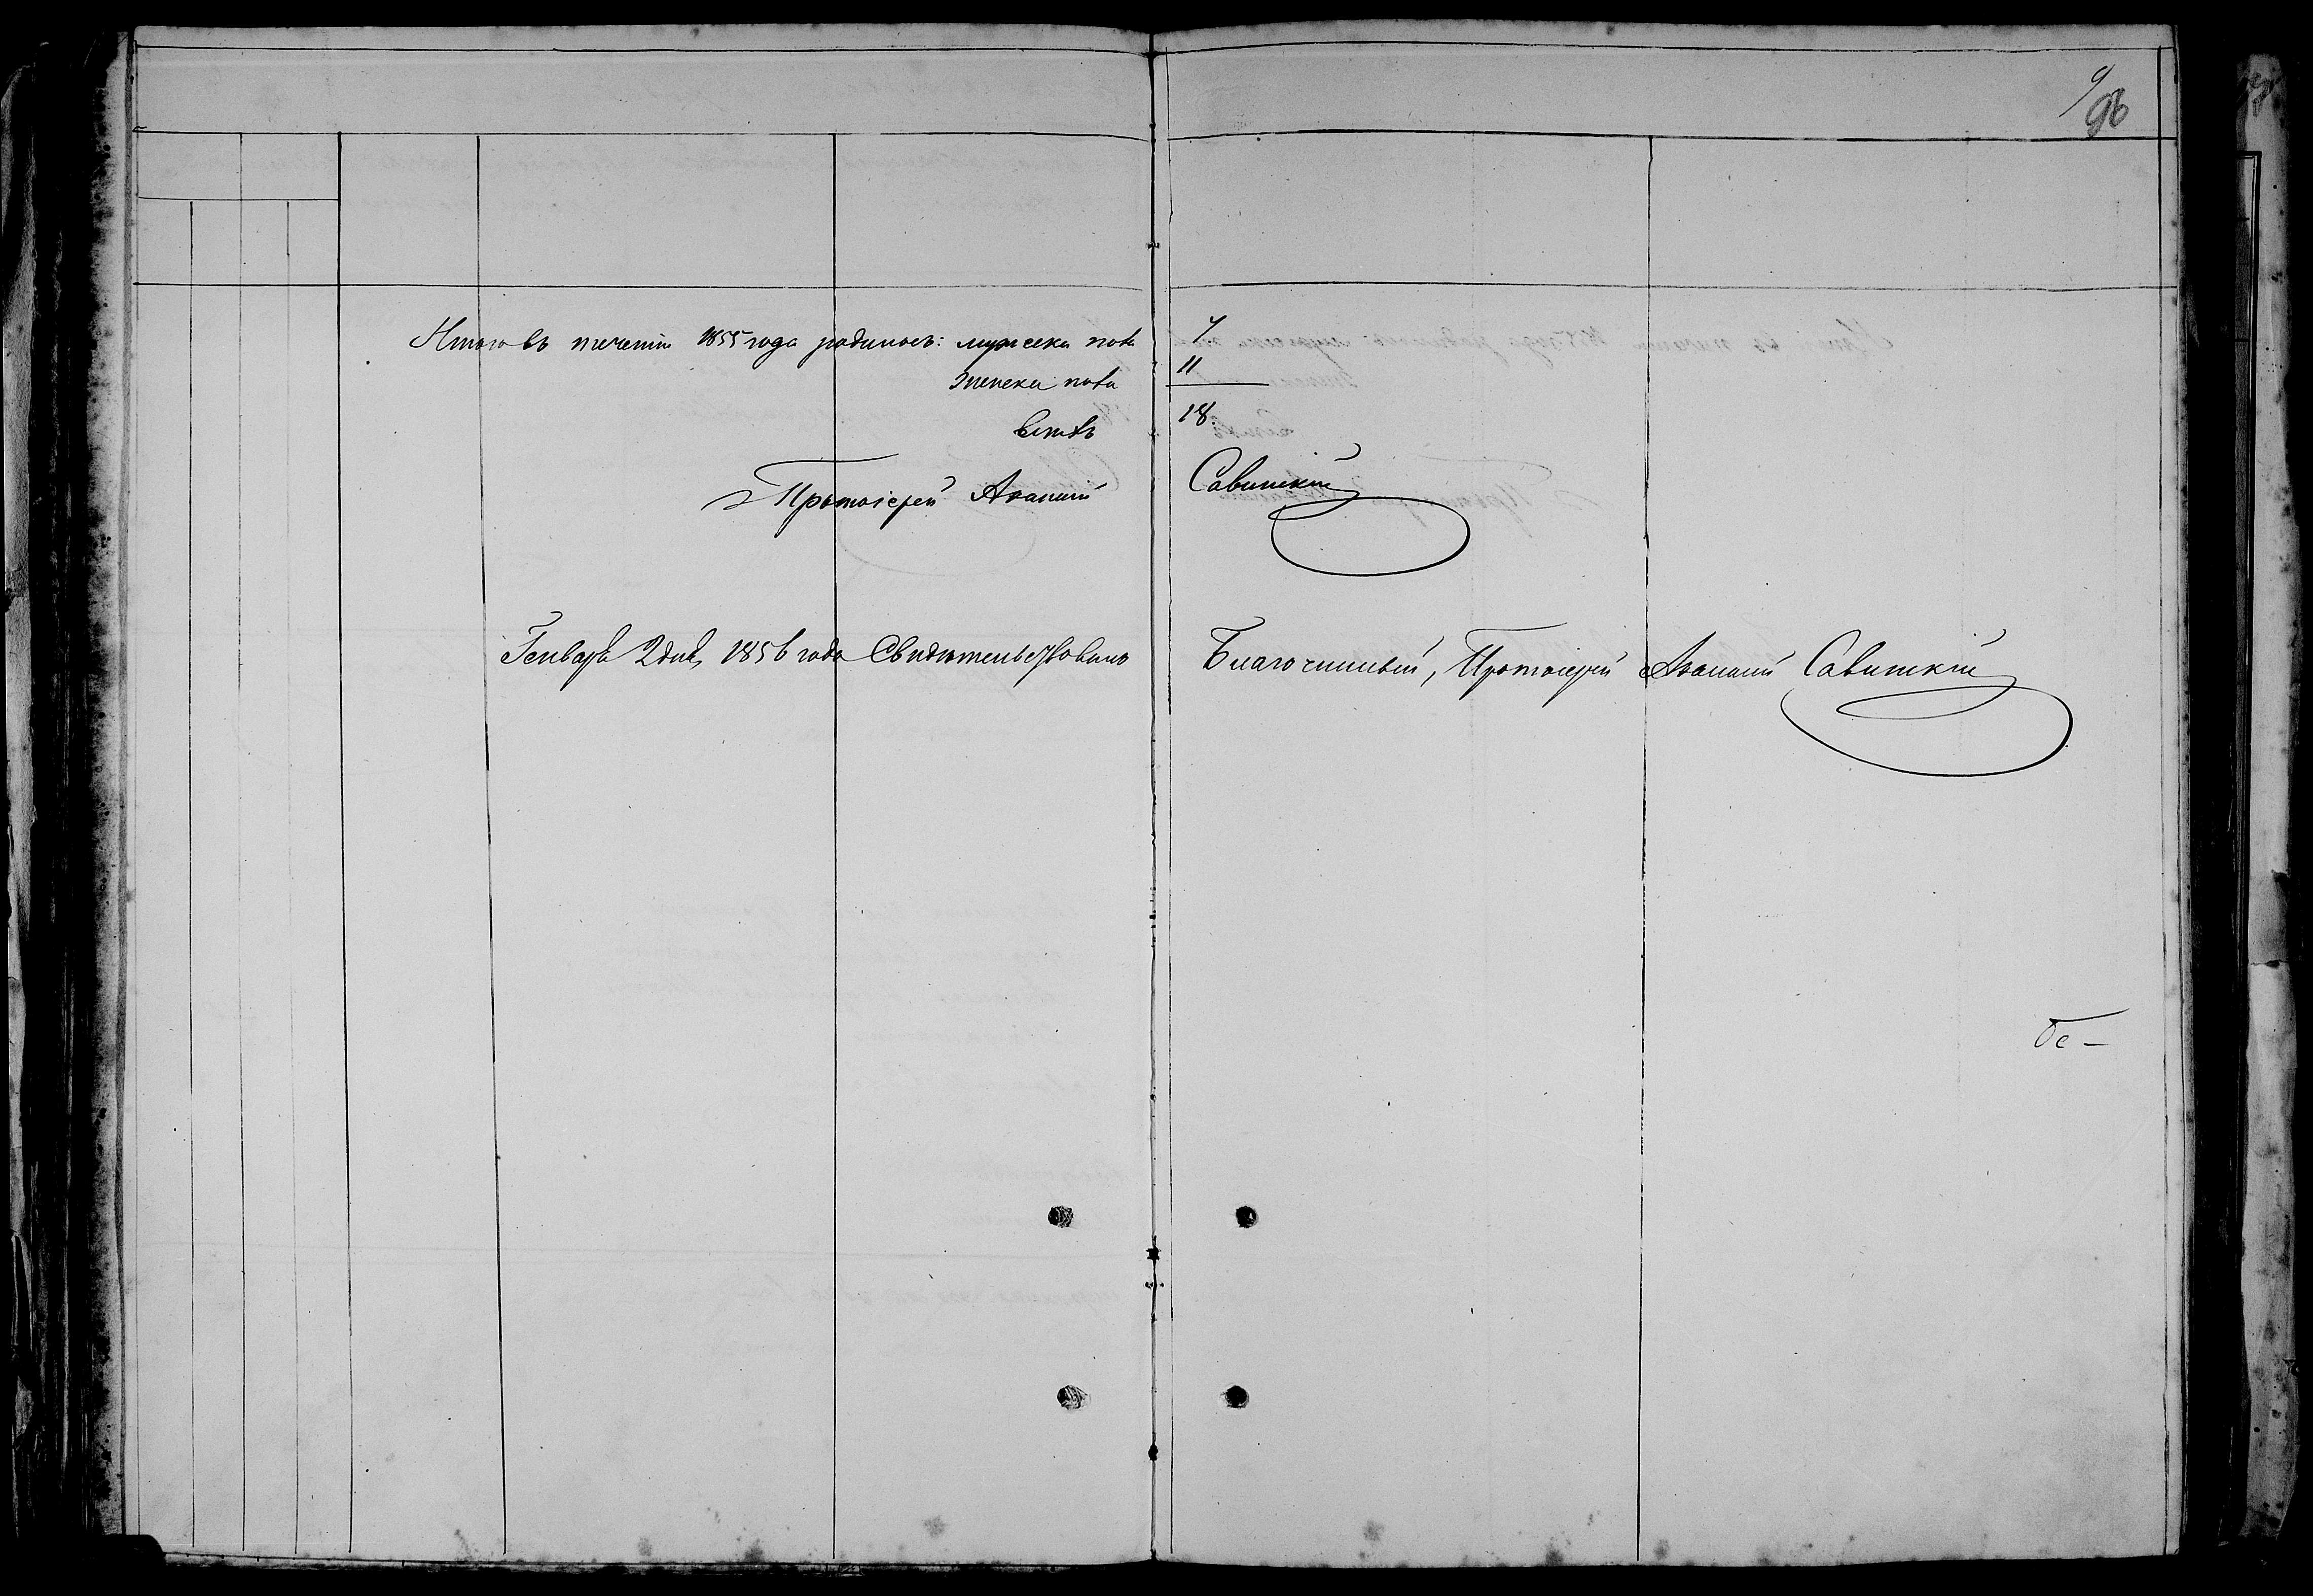 9
96
Итого въ теченіи 1855 года родилось: мужеска пола 7
Женска пола 11
всѣхъ 18
Протоіерей Ананій Савицкій
Генваря 2 дня, 1856 года Свидѣтельствовалъ Благочинный, Протоіерей Ананій Савицкій
бе —